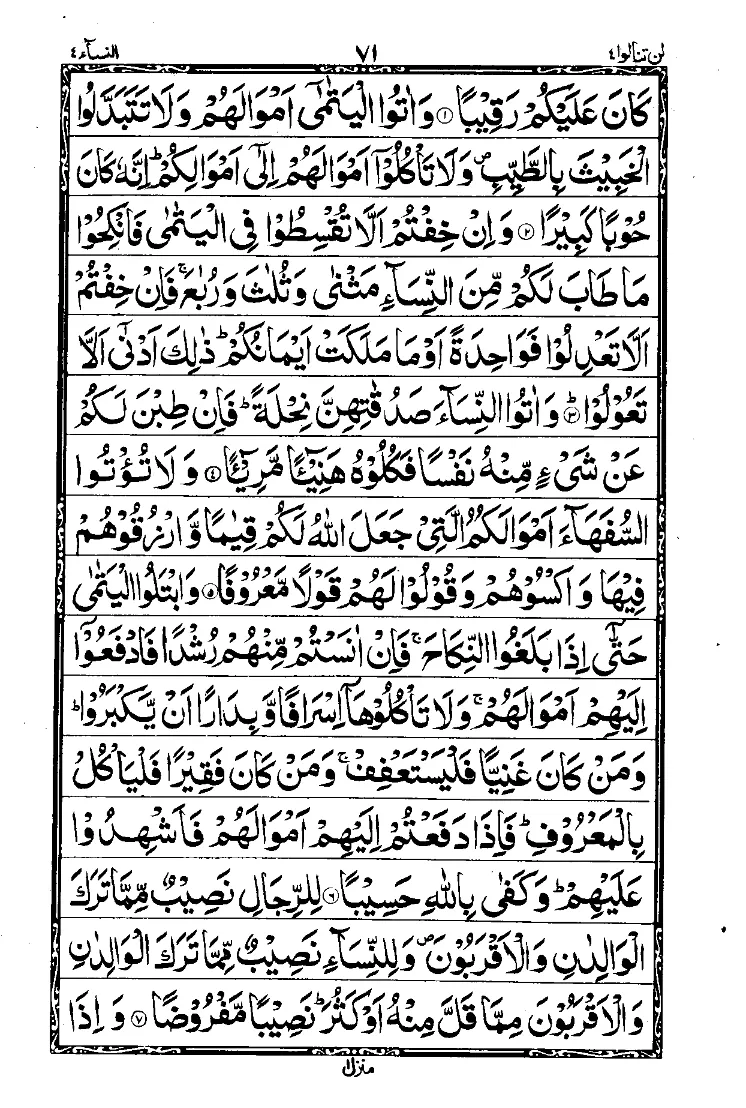 لن تنالوا٤ ٧١ النسآء٤
كَانَ عَلَيْكُمْ رَقِيْبًا ۝١ وَاٰتُوا الْيَتٰمٰۤى اَمْوَالَهُمْ وَلَا تَتَبَدَّلُوا
الْخَبِيْثَ بِالطَّيِّبِ ۪ وَلَا تَاْكُلُوْۤا اَمْوَالَهُمْ اِلٰۤى اَمْوَالِكُمْ ؕ اِنَّهٗ كَانَ
حُوْبًا كَبِيْرًا ۝٢ وَاِنْ خِفْتُمْ اَلَّا تُقْسِطُوْا فِى الْيَتٰمٰى فَانْكِحُوْا
مَا طَابَ لَكُمْ مِّنَ النِّسَآءِ مَثْنٰى وَثُلٰثَ وَرُبٰعَ ۚ فَاِنْ خِفْتُمْ
اَلَّا تَعْدِلُوْا فَوَاحِدَةً اَوْ مَا مَلَكَتْ اَيْمَانُكُمْ ؕ ذٰلِكَ اَدْنٰۤى اَلَّا
تَعُوْلُوْا ؕ۝٣ وَاٰتُوا النِّسَآءَ صَدُقٰتِهِنَّ نِحْلَةً ؕ فَاِنْ طِبْنَ لَكُمْ
عَنْ شَىْءٍ مِّنْهُ نَفْسًا فَكُلُوْهُ هَنِيْٓئًا مَّرِيْٓئًا ۝٤ وَلَا تُؤْتُوا
السُّفَهَآءَ اَمْوَالَكُمُ الَّتِىْ جَعَلَ اللّٰهُ لَكُمْ قِيٰمًا وَّارْزُقُوْهُمْ
فِيْهَا وَاكْسُوْهُمْ وَقُوْلُوْا لَهُمْ قَوْلًا مَّعْرُوْفًا ۝٥ وَابْتَلُوا الْيَتٰمٰى
حَتّٰۤى اِذَا بَلَغُوا النِّكَاحَ ۚ فَاِنْ اٰنَسْتُمْ مِّنْهُمْ رُشْدًا فَادْفَعُوْۤا
اِلَيْهِمْ اَمْوَالَهُمْ ۚ وَلَا تَاْكُلُوْهَاۤ اِسْرَافًا وَّبِدَارًا اَنْ يَّكْبَرُوْا ؕ
وَمَنْ كَانَ غَنِيًّا فَلْيَسْتَعْفِفْ ۚ وَمَنْ كَانَ فَقِيْرًا فَلْيَاْكُلْ
بِالْمَعْرُوْفِ ؕ فَاِذَا دَفَعْتُمْ اِلَيْهِمْ اَمْوَالَهُمْ فَاَشْهِدُوْا
عَلَيْهِمْ ؕ وَكَفٰى بِاللّٰهِ حَسِيْبًا ۝٦ لِلرِّجَالِ نَصِيْبٌ مِّمَّا تَرَكَ
الْوَالِدٰنِ وَالْاَقْرَبُوْنَ ۪ وَلِلنِّسَآءِ نَصِيْبٌ مِّمَّا تَرَكَ الْوَالِدٰنِ
وَالْاَقْرَبُوْنَ مِمَّا قَلَّ مِنْهُ اَوْ كَثُرَ ؕ نَصِيْبًا مَّفْرُوْضًا ۝٧ وَاِذَا
منزل١